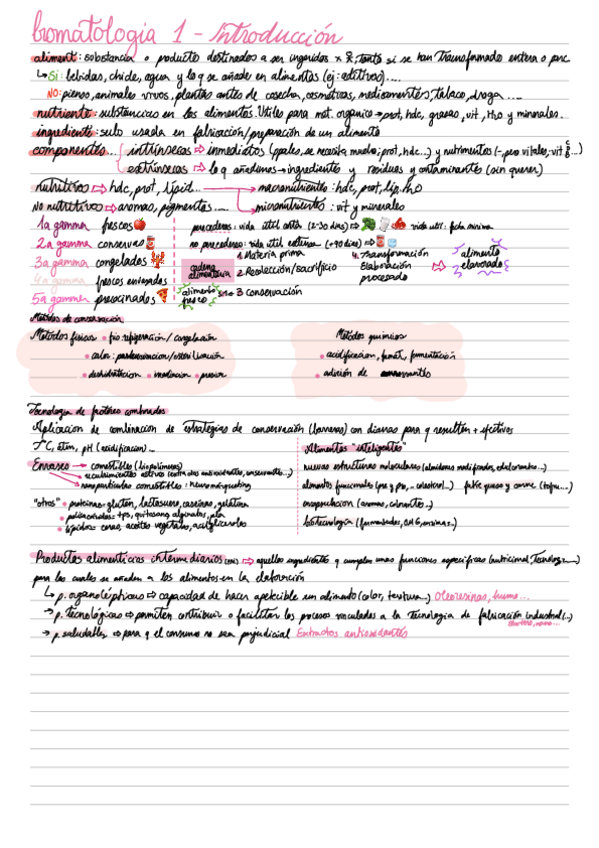 bromatologia 1 - Introducción
aliment: substancia o producto destinados a ser ingeridos x, tanto si se han transformado entera o parc
↳ Sí: bebidas, chicle, agua y lo q se añade en alimentos (ej: aditivos)....
NO: pienso, animales vivos, plantas antes de cosecha, cosmeticos, medicamentos, tabaco, droga ...
nutriente: substancias en los alimentos. Utiles para mat. organica → prot, hdc, grasas, vit, H2O y minerales.
ingrediente: subs usada en fabricación/preparación de un alimento
componentes... → intrínsecos ⇒ inmediatos (ppales, se necesita mucho; prot, hdc...) y nutrimentos (- pero vitales, vit...)
extrínsecos ⇒ lo q añadimos → ingredientes y residuos y contaminantes (sin querer)
nutritivos ⇒ hdc, prot, lipid... → macronutrientes: hdc, prot, lip, H2O
No nutritivos ⇒ aromas, pigmentos.... → micronutrientes: vit y minerales
1a gamma frescos
2a gamma conservas
3a gamma congelados
4a gamma frescos envasados
5a gamma precocinados
perecederos: vida util corta (2-30 dias) ⇒ vida util: fecha minima
no perecederos: vida util extensa (+90 dias) ⇒
cadena alimentaria
1. Materia prima
2. Recolección/sacrificio
alimento fresco 3 conservación
4. Transformación
Elaboración
procesado
⇒ alimento elavorado
Metodos de conservación
Metodos fisicos • frio: refrigeración/congelación
• calor: pasteurización/esterilización
• deshidratacion • irradiacion • presion
Metodos quimicos
• acidificacion, fermentación
• adición de
Tecnologia de factores combinados
Aplicacion de combinacion de estrategias de conservación (barreras) con dianas para q resulten + efectivos
Tª C, atm, pH (acidificacion)...
Envases → comestibles (biopolimeros)
→ recubrimientos activos (contra dos antioxidantes, conservante...)
→ nanoparticulas comestibles:
"otros" • proteinas = gluten, lactosuero, caseinas, gelatina
• polisacaridos = quitosano, alginatos
• lipidos = ceras, aceites vegetales, acilgliceroles
Alimentos "inteligentes"
nuevas estructuras moleculares (almidones modificados, edulcorantes...)
alimentos funcionales (pre y pro, - colesterol...) fake queso y carne (tofu...)
encapsulacion (aromas, colorantes..)
biotecnología (fermentados, OMG, enzimas..)
Productos alimenticios intermediarios ⇒ aquellos ingredientes q cumplen unas funciones especificas (nutricional, Tecnolog.....)
para las cuales se añaden a los alimentos en la elaboración
↳ p. organolépticas ⇒ capacidad de hacer apetecible un alimento (color, textura...) Oleoresinas, humo...
→ p. tecnológicas ⇒ permiten contribuir o facilitar los procesos vinculados a la tecnologia de fabricación industrial (...)
→ p. saludables ⇒ para q el consumo no sea perjudicial Extractos antioxidantes